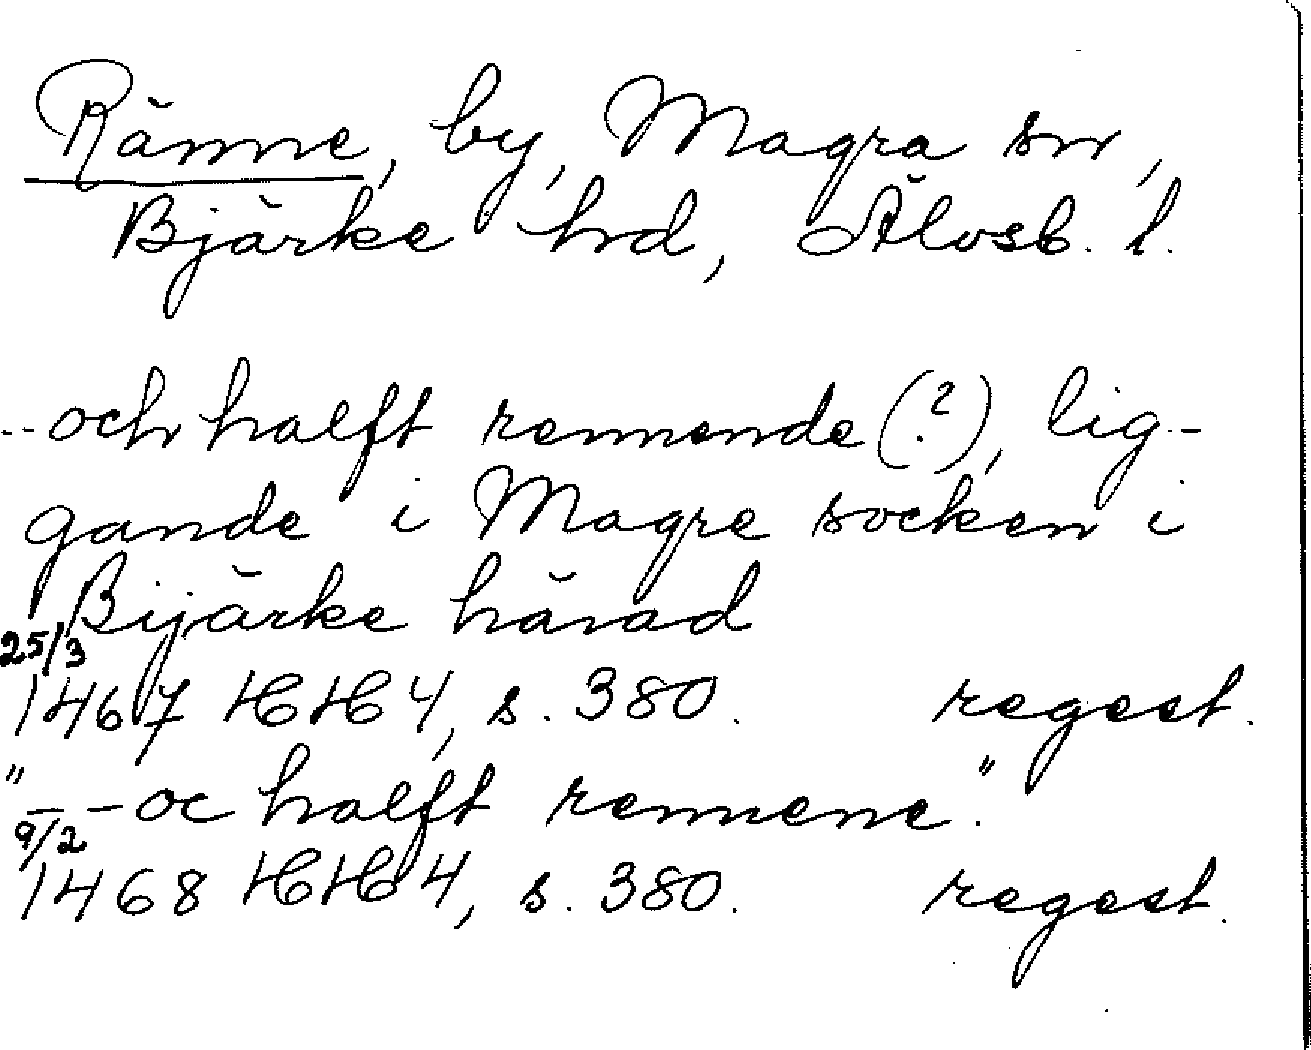 Ränne, by, Magra sn,
Bjärke hd, Älvsb. l.
--och halft rennende (?), lig-
gande i Magre socken i
Bijärke härad
25/3
1467 HH 4, s. 380. regest.
"--oc halft rennene."
9/2
1468 HH 4, s. 380. regest.